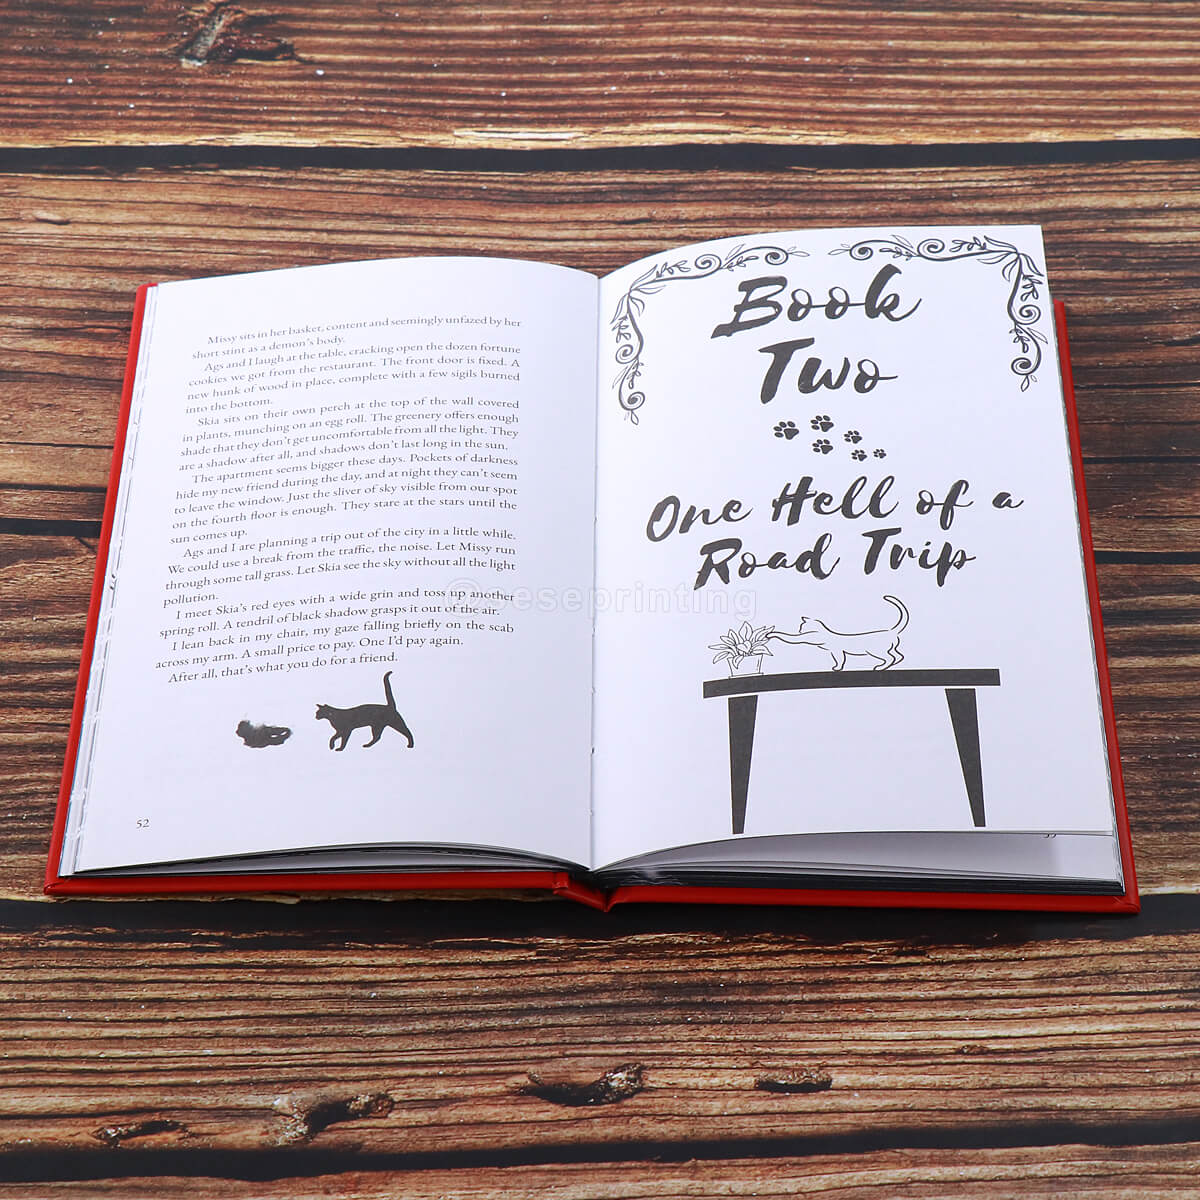 Missy sits in her basket, content and seemingly unfazed by her
short stint as a demon's body.
Ags and I laugh at the table, cracking open the dozen fortune
cookies we got from the restaurant. The front door is fixed. A
new hunk of wood in place, complete with a few sigils burned
into the bottom.
Skia sits on their own perch at the top of the wall covered
in plants, munching on an egg roll. The greenery offers enough
shade that they don't get uncomfortable from all the light. They
are a shadow after all, and shadows don't last long in the sun.
The apartment seems bigger these days. Pockets of darkness
hide my new friend during the day, and at night they can't seem
to leave the window. Just the sliver of sky visible from our spot
on the fourth floor is enough. They stare at the stars until the
sun comes up.
Ags and I are planning a trip out of the city in a little while.
We could use a break from the traffic, the noise. Let Missy run
through some tall grass. Let Skia see the sky without all the light
pollution.
I meet Skia's red eyes with a wide grin and toss up another
spring roll. A tendril of black shadow grasps it out of the air.
I lean back in my chair, my gaze falling briefly on the scab
across my arm. A small price to pay. One I'd pay again.
After all, that's what you do for a friend.
52
Book
Two
One Hell of a
Road Trip
©seseprinting